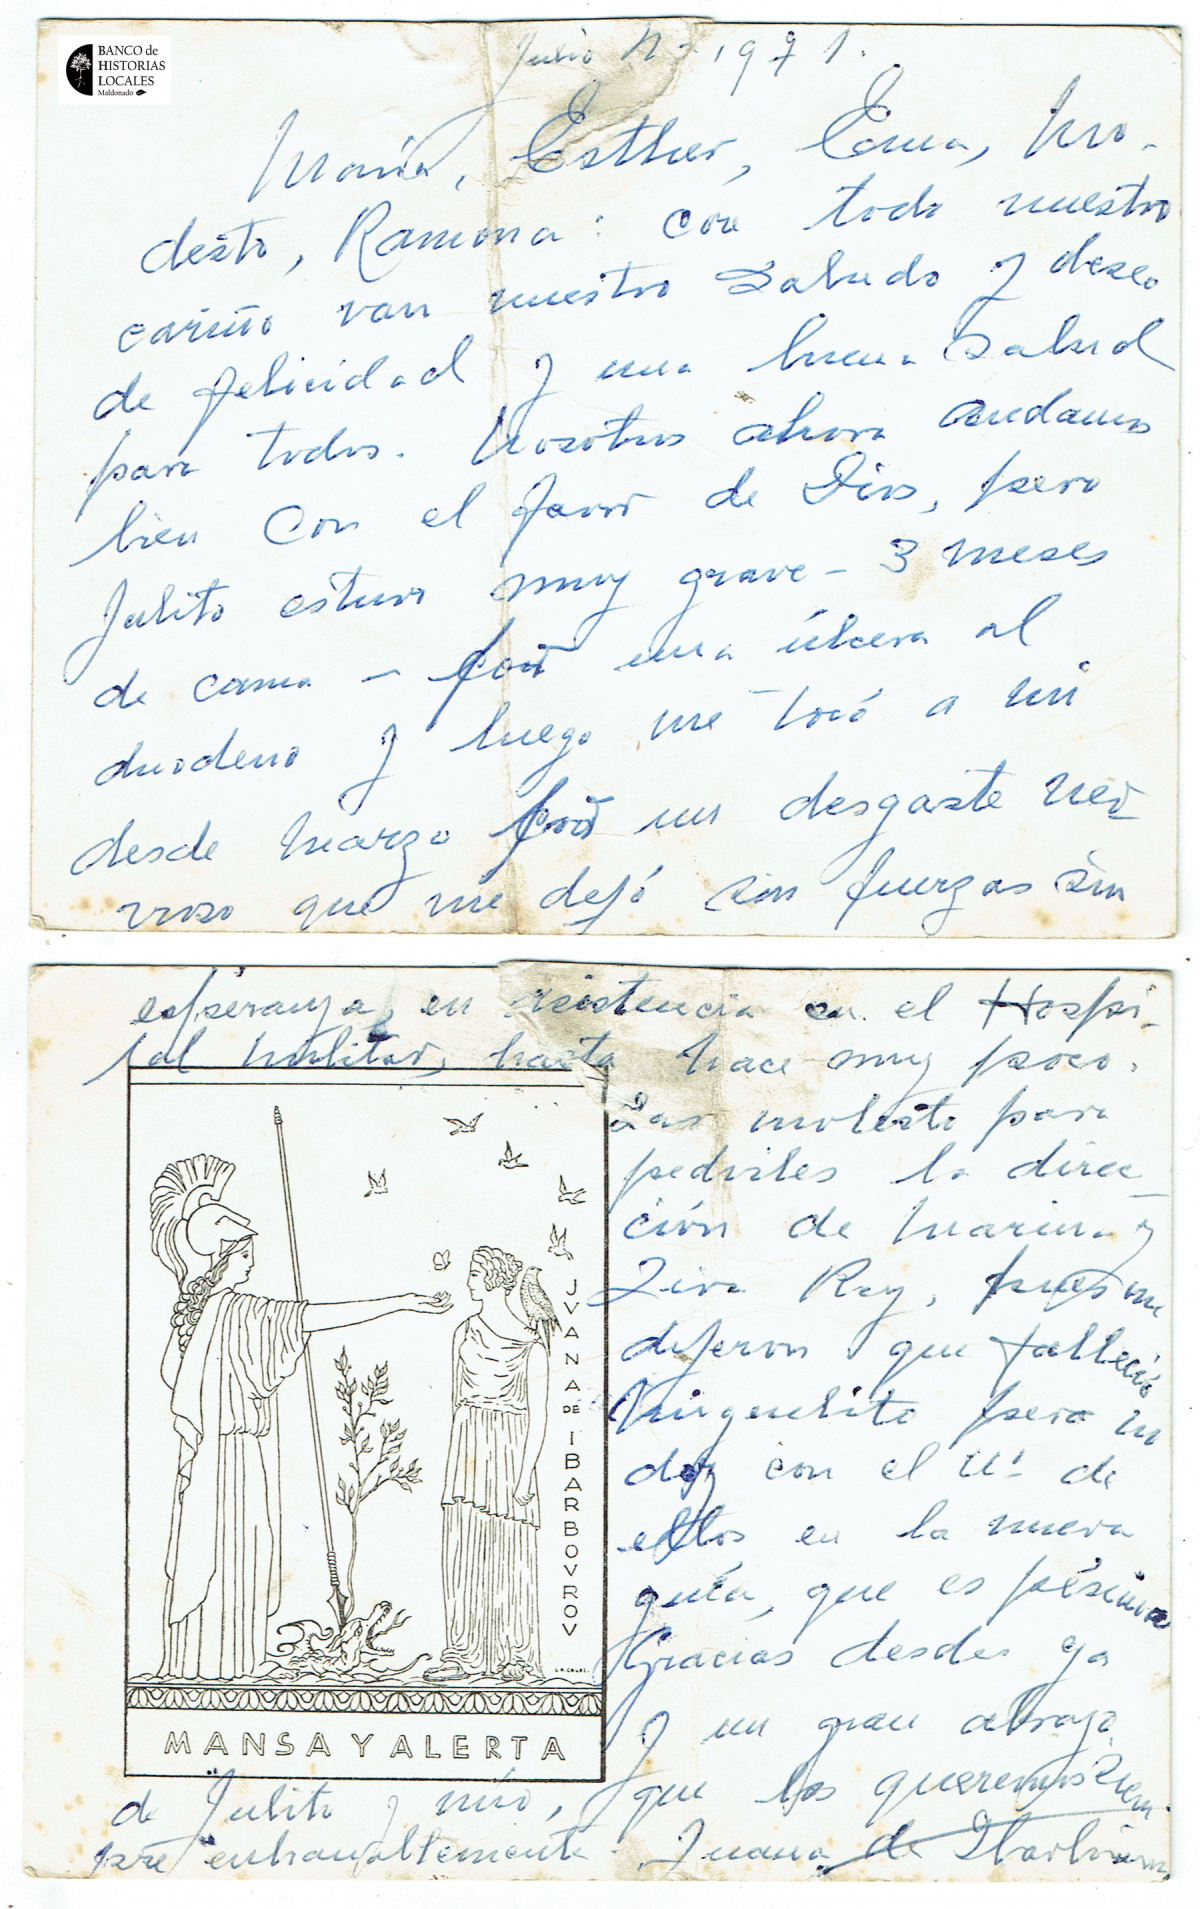 BANCO de
HISTORIAS
LOCALES
Maldonado
Julio 1971.
María, Esther, Ema, Mo-
desto, Ramona: con todo nuestro
cariño van nuestro saludo y deseo
de felicidad y una buena salud
para todos. Nosotros ahora andamos
bien con el favor de Dios, pero
Julito estuvo muy grave - 3 meses
de cama - por una úlcera al
duodeno y luego me tocó a mi
desde marzo por un desgaste ner
vioso que me dejó sin fuerzas sin
esperanza, en asistencia en el Hospi-
tal militar, hasta hace muy poco.
Las molesto para
pedirles la direc
ción de Marina y
Ray, pues me
dijeron que falleció
pero no
doy con el Nº de
ellos en la nueva
guía, que es pésima
Gracias desde ya
y un gran abrazo
de Julito y mío, que los queremos siem
pre entrañablemente. Juana de Ibarbourou
JVANA DE IBARBOVROV
MANSA Y ALERTA